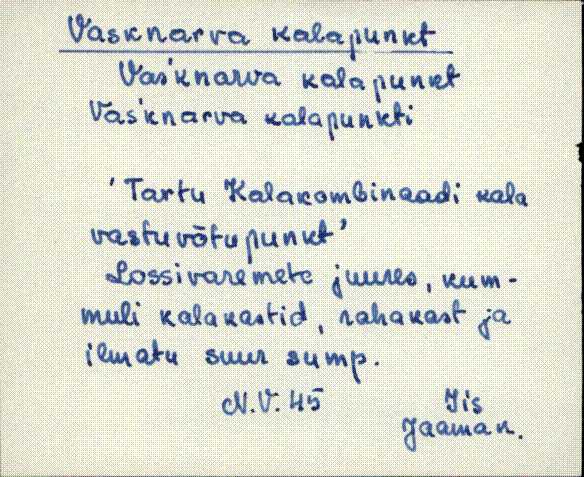 Vasknarva kalapunkt
Vas'knarva kalapunkt
Vas'knarva kalapunkti
'Tartu Kalakombinaadi kala
vastuvõtupunkt'
Lossivaremete juures, kum-
muli kalakastid, rahakast ja
ilmatu suur sump.
N.V. 45
Iis
Jaaman.